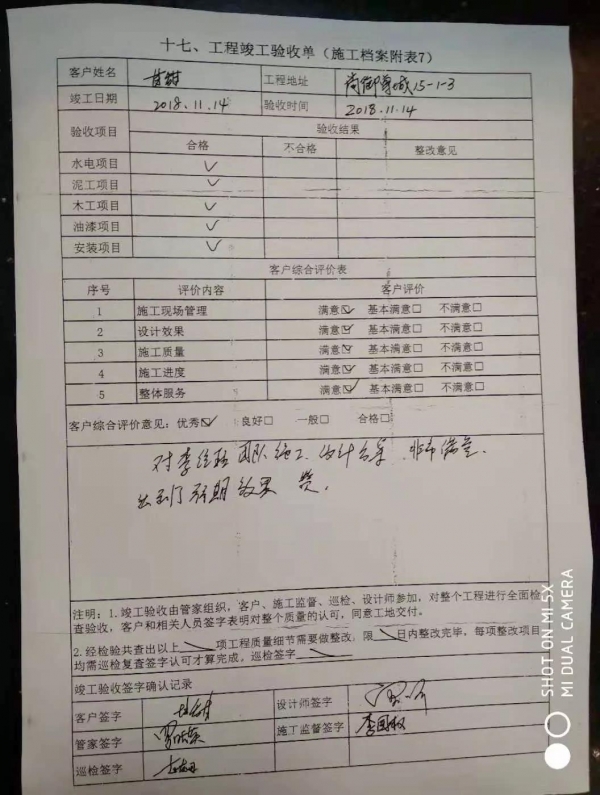 十七、工程竣工验收单（施工档案附表7）
客户姓名 甘甜 工程地址 尚御尊城15-1-3
竣工日期 2018.11.14 验收时间 2018.11.14
验收项目 验收结果
合格 不合格 整改意见
水电项目 ✓
泥工项目 ✓
木工项目 ✓
油漆项目 ✓
安装项目 ✓
客户综合评价表
序号 评价内容 客户评价
1 施工现场管理 满意☑ 基本满意□ 不满意□
2 设计效果 满意☑ 基本满意□ 不满意□
3 施工质量 满意☑ 基本满意□ 不满意□
4 施工进度 满意☑ 基本满意□ 不满意□
5 整体服务 满意☑ 基本满意□ 不满意□
客户综合评价意见：优秀☑ 良好□ 一般□ 合格□
对李 团队施工、设计 非常满意
到了预期效果 赞.
注明：1.竣工验收由管家组织，客户、施工监督、巡检、设计师参加，对整个工程进行全面检
查验收，客户和相关人员签字表明对整个质量的认可，同意工地交付。
2.经检验共查出以上 项工程质量细节需要做整改，限 日内整改完毕，每项整改项目
均需巡检复查签字认可才算完成。巡检签字
竣工验收签字确认记录
客户签字 设计师签字
管家签字 施工监督签字 李国权
巡检签字
SHOT ON MI 5X
MI DUAL CAMERA